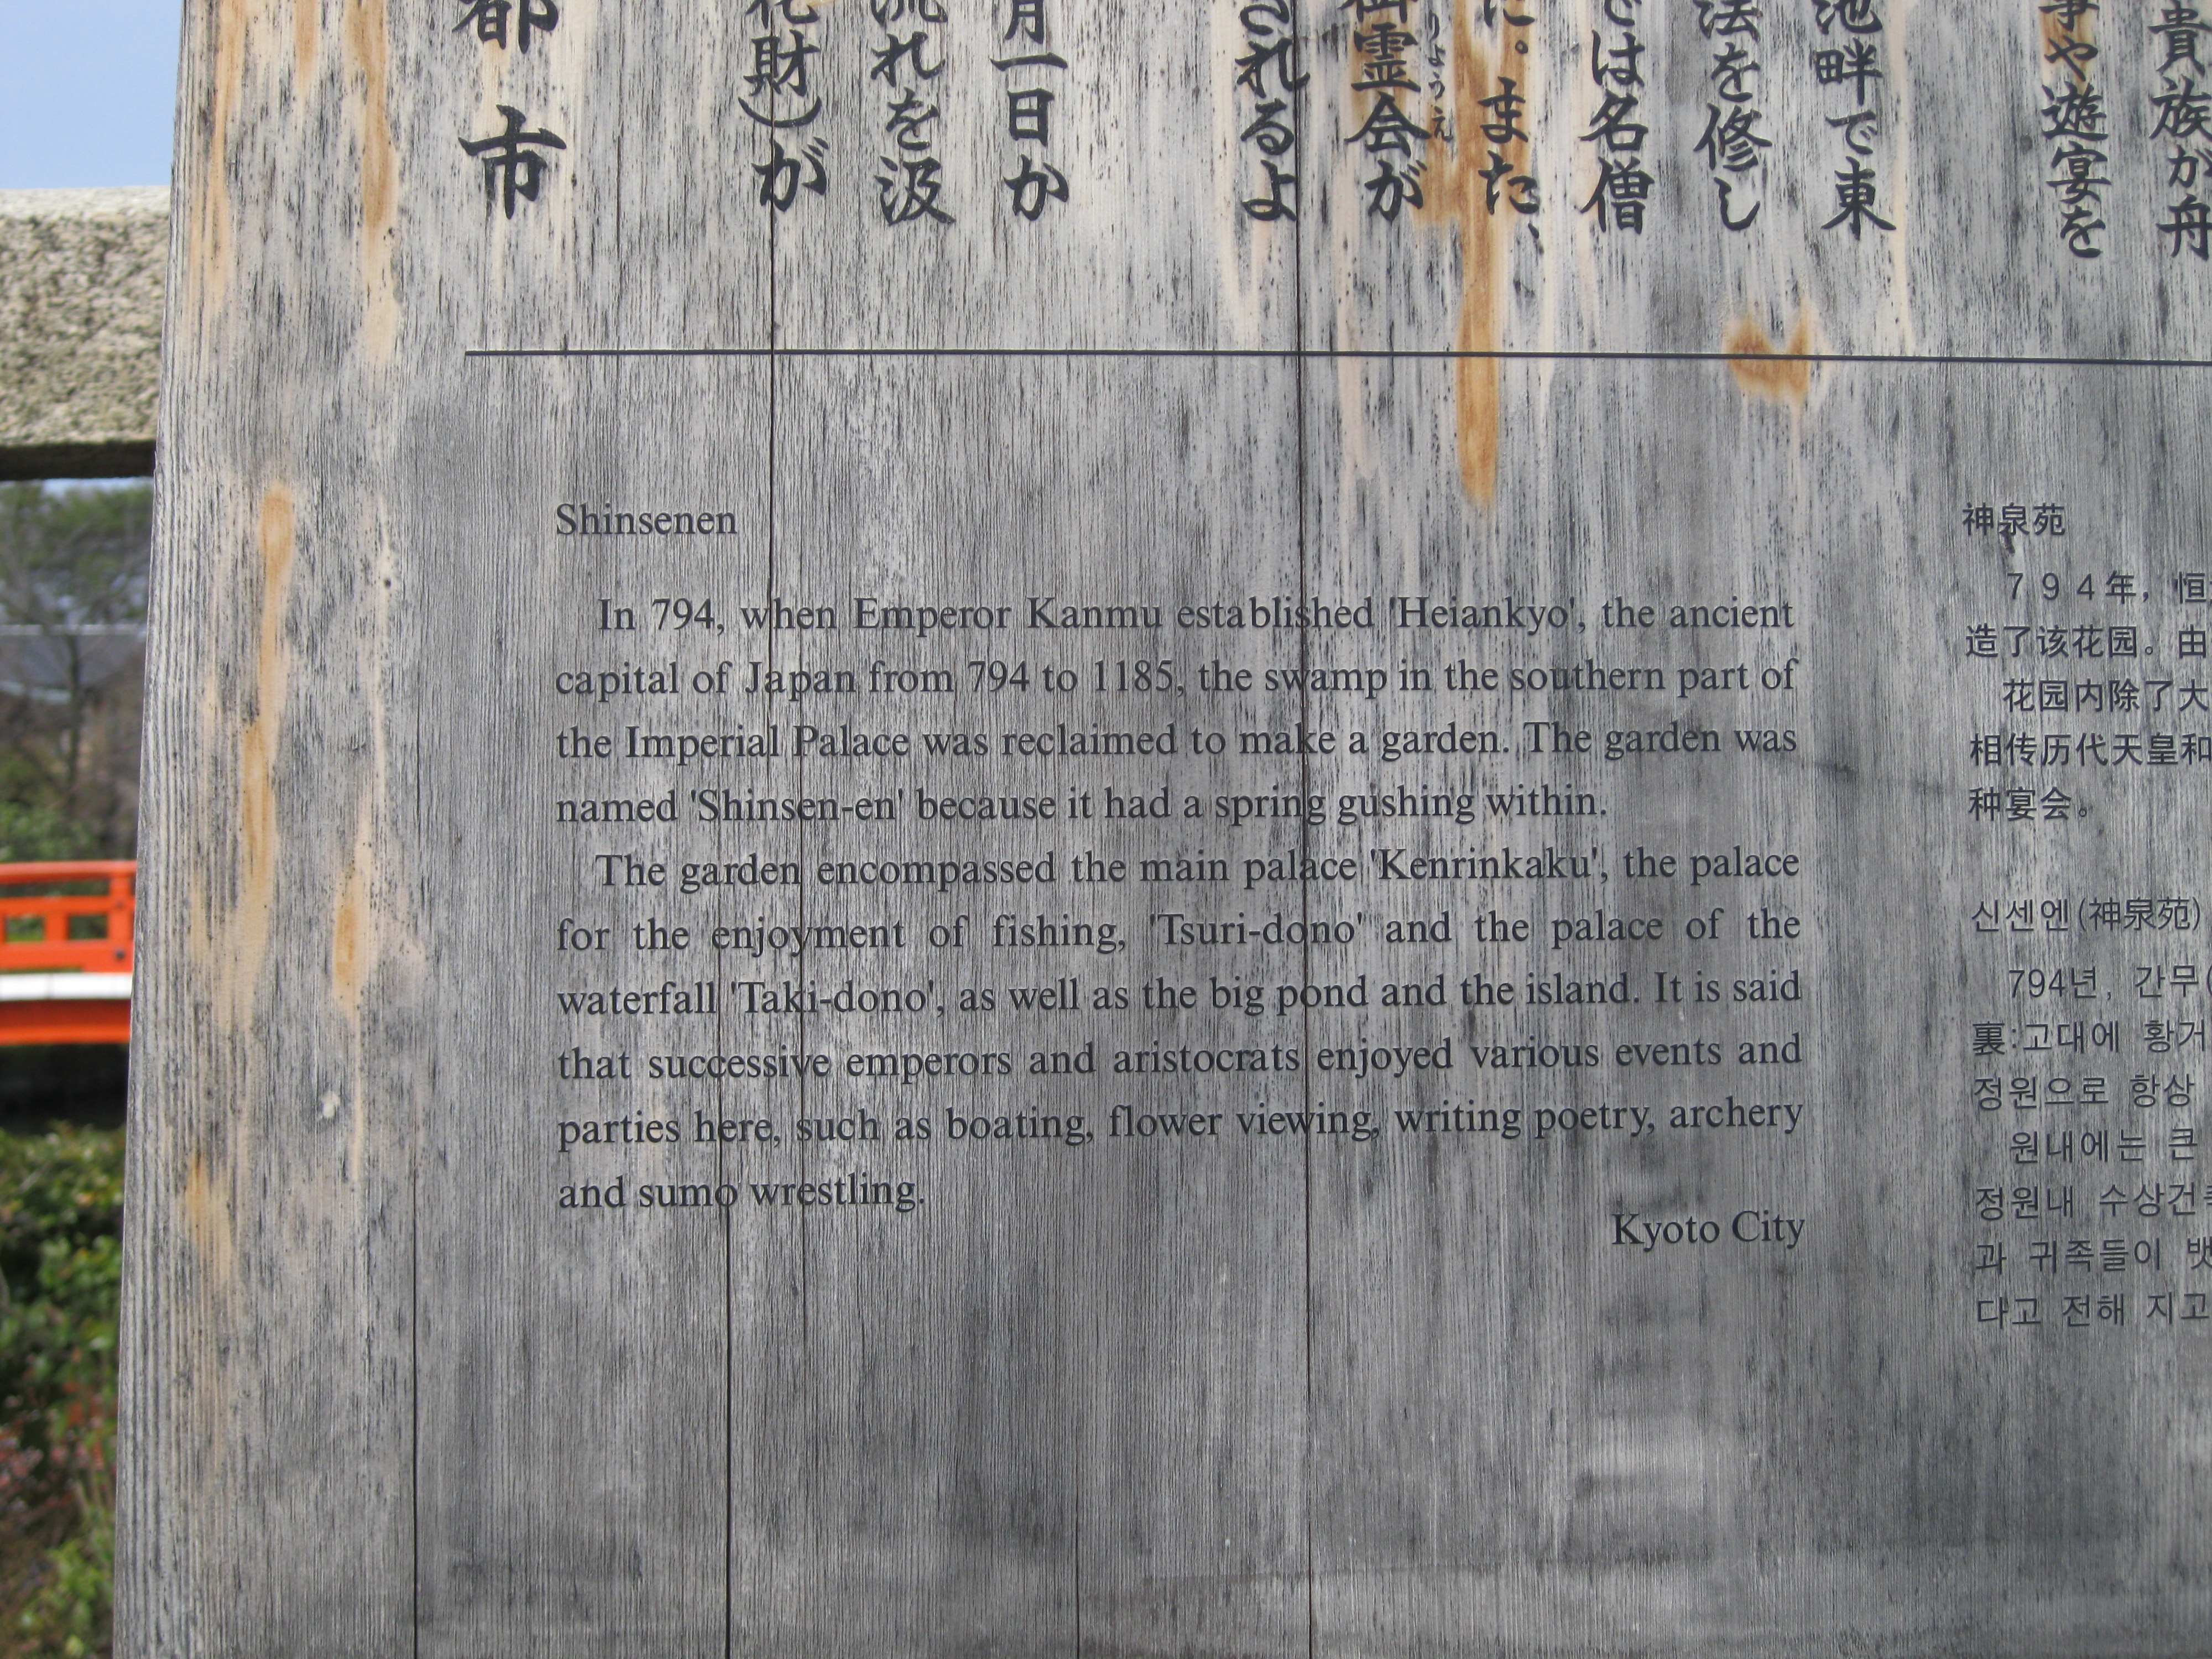 貴族が舟
事や遊宴を
池畔で東
法を修し
では名僧
に。また、
御霊会が
りょうえ
されるよ
月一日か
流れを汲
化財)が
都市
Shinsenen
In 794, when Emperor Kanmu established 'Heiankyo', the ancient
capital of Japan from 794 to 1185, the swamp in the southern part of
the Imperial Palace was reclaimed to make a garden. The garden was
named 'Shinsen-en' because it had a spring gushing within.
The garden encompassed the main palace 'Kenrinkaku', the palace
for the enjoyment of fishing, 'Tsuri-dono' and the palace of the
waterfall 'Taki-dono', as well as the big pond and the island. It is said
that successive emperors and aristocrats enjoyed various events and
parties here, such as boating, flower viewing, writing poetry, archery
and sumo wrestling.
Kyoto City
神泉苑
794年，恒
造了该花园。由
花园内除了大
相传历代天皇和
种宴会。
신센엔(神泉苑)
794년, 간무(
裏:고대에 황거
정원으로 항상
원내에는 큰
정원내 수상건
과 귀족들이 뱃
다고 전해 지고